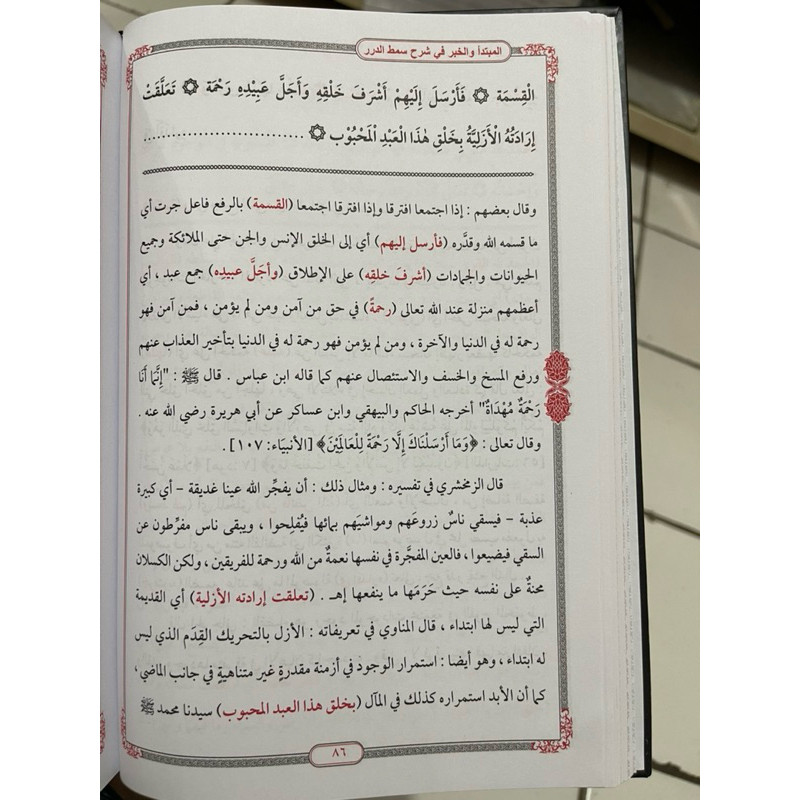 المبتدأ والخبر في شرح سمط الدرر
الْقِسْمَة ۞ فَأَرْسَلَ إِلَيْهِمْ أَشْرَفَ خَلْقِهِ وَأَجَلَّ عَبِيْدِهِ رَحْمَة ۞ تَعَلَّقَتْ
إِرَادَتُهُ الْأَزَلِيَّةُ بِخَلْقِ هٰذَا الْعَبْدِ الْمَحْبُوْبِ ۞ ..............................
وقال بعضهم : إذا اجتمعا افترقا وإذا افترقا اجتمعا (القسمة) بالرفع فاعل جرت أي
ما قسمه الله وقدَّره (فأرسل إليهم) أي إلى الخلق الإنس والجن حتى الملائكة وجميع
الحيوانات والجمادات (أشرفَ خلقِه) على الإطلاق (وأجَلَّ عبيدِه) جمع عبد ، أي
أعظمهم منزلة عند الله تعالى (رحمةً) في حق من آمن ومن لم يؤمن ، فمن آمن فهو
رحمة له في الدنيا والآخرة ، ومن لم يؤمن فهو رحمة له في الدنيا بتأخير العذاب عنهم
ورفع المسخ والخسف والاستئصال عنهم كما قاله ابن عباس . قال ﷺ : "إِنَّمَا أَنَا
رَحْمَةٌ مُهْدَاةٌ" أخرجه الحاكم والبيهقي وابن عساكر عن أبي هريرة رضي الله عنه .
وقال تعالى : ﴿وَمَا أَرْسَلْنَاكَ إِلَّا رَحْمَةً لِلْعَالَمِيْنَ﴾ [الأنبيَاء: ١٠٧] .
قال الزمخشري في تفسيره : ومثال ذلك : أن يفجِّر الله عينا غديقة – أي كبيرة
عذبة – فيسقي ناسٌ زروعَهم ومواشيَهم بمائها فيُفلِحوا ، ويبقى ناس مفرِّطون عن
السقي فيضيعوا ، فالعين المفجَّرة في نفسها نعمةٌ من الله ورحمة للفريقين ، ولكن الكسلان
محنةٌ على نفسه حيث حَرَمَها ما ينفعها إهـ . (تعلقت إرادته الأزلية) أي القديمة
التي ليس لها ابتداء ، قال المناوي في تعريفاته : الأزل بالتحريك القِدَم الذي ليس
له ابتداء ، وهو أيضا : استمرار الوجود في أزمنة مقدرةٍ غير متناهيةٍ في جانب الماضي ،
كما أن الأبد استمراره كذلك في المآل (بخلق هذا العبد المحبوب) سيدنا محمد ﷺ
٨٦